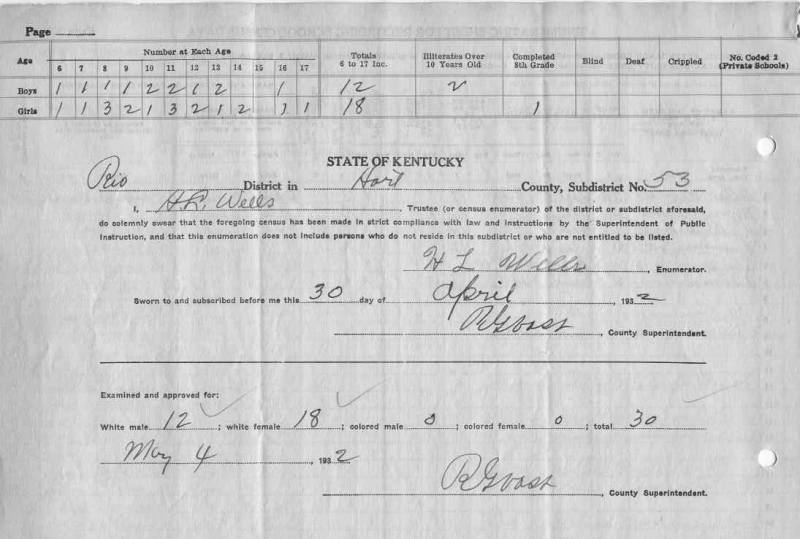 Page
Age Number at Each Age Totals 6 to 17 Inc. Illiterates Over 10 Years Old Completed 8th Grade Blind Deaf Crippled No. Coded 2 (Private Schools)
6 7 8 9 10 11 12 13 14 15 16 17
Boys 1 1 1 1 2 2 1 2 1 12 2
Girls 1 1 3 2 1 3 2 1 2 1 1 18 1
STATE OF KENTUCKY
Rio District in Hart County, Subdistrict No. 53
I, H.L. Wells, Trustee (or census enumerator) of the district or subdistrict aforesaid,
do solemnly swear that the foregoing census has been made in strict compliance with law and instructions by the Superintendent of Public
Instruction, and that this enumeration does not include persons who do not reside in this subdistrict or who are not entitled to be listed.
H L Wells, Enumerator.
Sworn to and subscribed before me this 30 day of April, 1932
, County Superintendent.
Examined and approved for:
White male 12; white female 18; colored male 0; colored female 0; total 30
May 4, 1932
, County Superintendent.